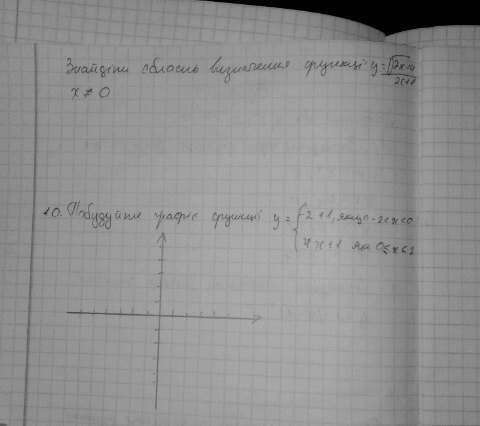 Знайдіть область визначення функції y =
x ≠ 0
10. Побудуйте графік функції y = {-2+1, якщо -2<x<0
4x+1 як 0≤x≤2